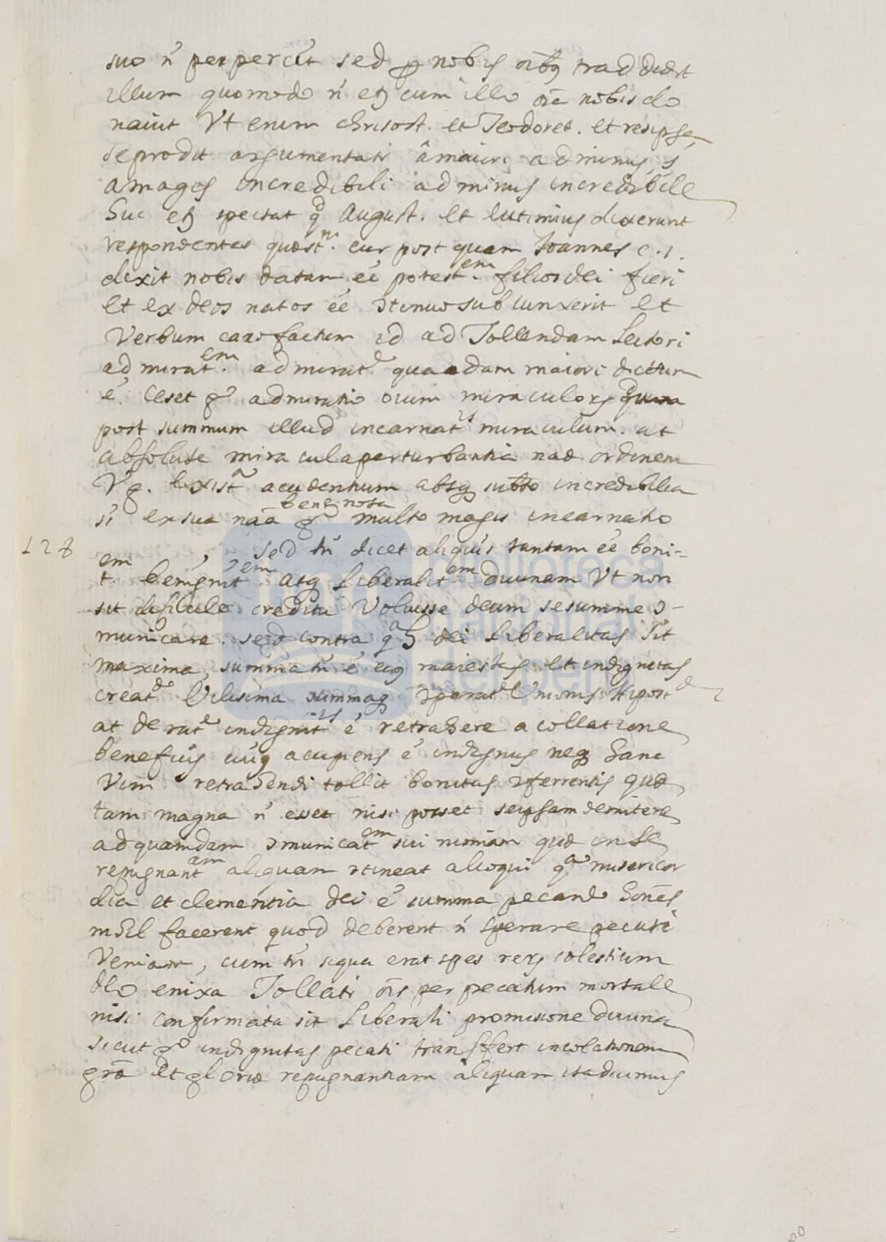 suo ñ pepercit sed p nobis oîbȝ traddidit
illum quomodo ñ etȝ cum illo oîa nobis do
navit Vt enim chrisost. et Teodoret. et res ipsa
se prodit argumentati â maiori ad minus, s
a magis incredibili ad minus incredibile
huc etȝ spectat qd August. et Eutimius dixerunt
respondentes quæst.ni cur post quam Joannes c. 1.
dixit nobis datam eê potest.em filios dei fieri
et ex deo natos eê ɔtinuo subiunxerit et
Verbum caro factum id ad Tollendam lectori
admirat.em admirat.e quadam maiori dictum
ê. Cesset gº admiratio oium miraculorȝ
post summum illud incarnatis miraculum. at
absolute miracula perturbantia naæ ordinem
Vg. exista accidentium absqȝ subto incredibilia
st ex sua naa gº multo magis incarnatio
128 sed tñ dicet aliquis tantam eê boni-
tem benignitem atqȝ Liberalitem divinam Vt non
sit dificile creditu Voluisse deum se summe ɔ-
municare. sed contra qa dei liberalitas sit
maxima, summa tñ ê eiȝ maiestas et indignitas
creatæ Vilisima summaqȝ Unionis
at de rate indignitis ê retrahere a collatione
beneficiis cuiȝ accipiens ê indignus neqȝ hanc
Vim retrahendi tollit bonitas ɔferentis quæ
tam magna ñ esset nisi posset seipsam demitere
ad quamdam ɔmunicatem sui nimiam quæ in se
repugnantam aliquam ɔtineat alioqui qa misericor
dia et clementia dei ê summa pecando hones
nihil facerent quod deberent ñ sperare pecati
Veniam, cum tñ siqua erat spes rerȝ coelestium
deo enixa Tollati oîs per pecatum mortale
nisi confirmata sit Liberali promisione divina
sicut gº indignitas pecati transfert in colationem
græ et gloriæ repugnantiam aliquam ita dicimus